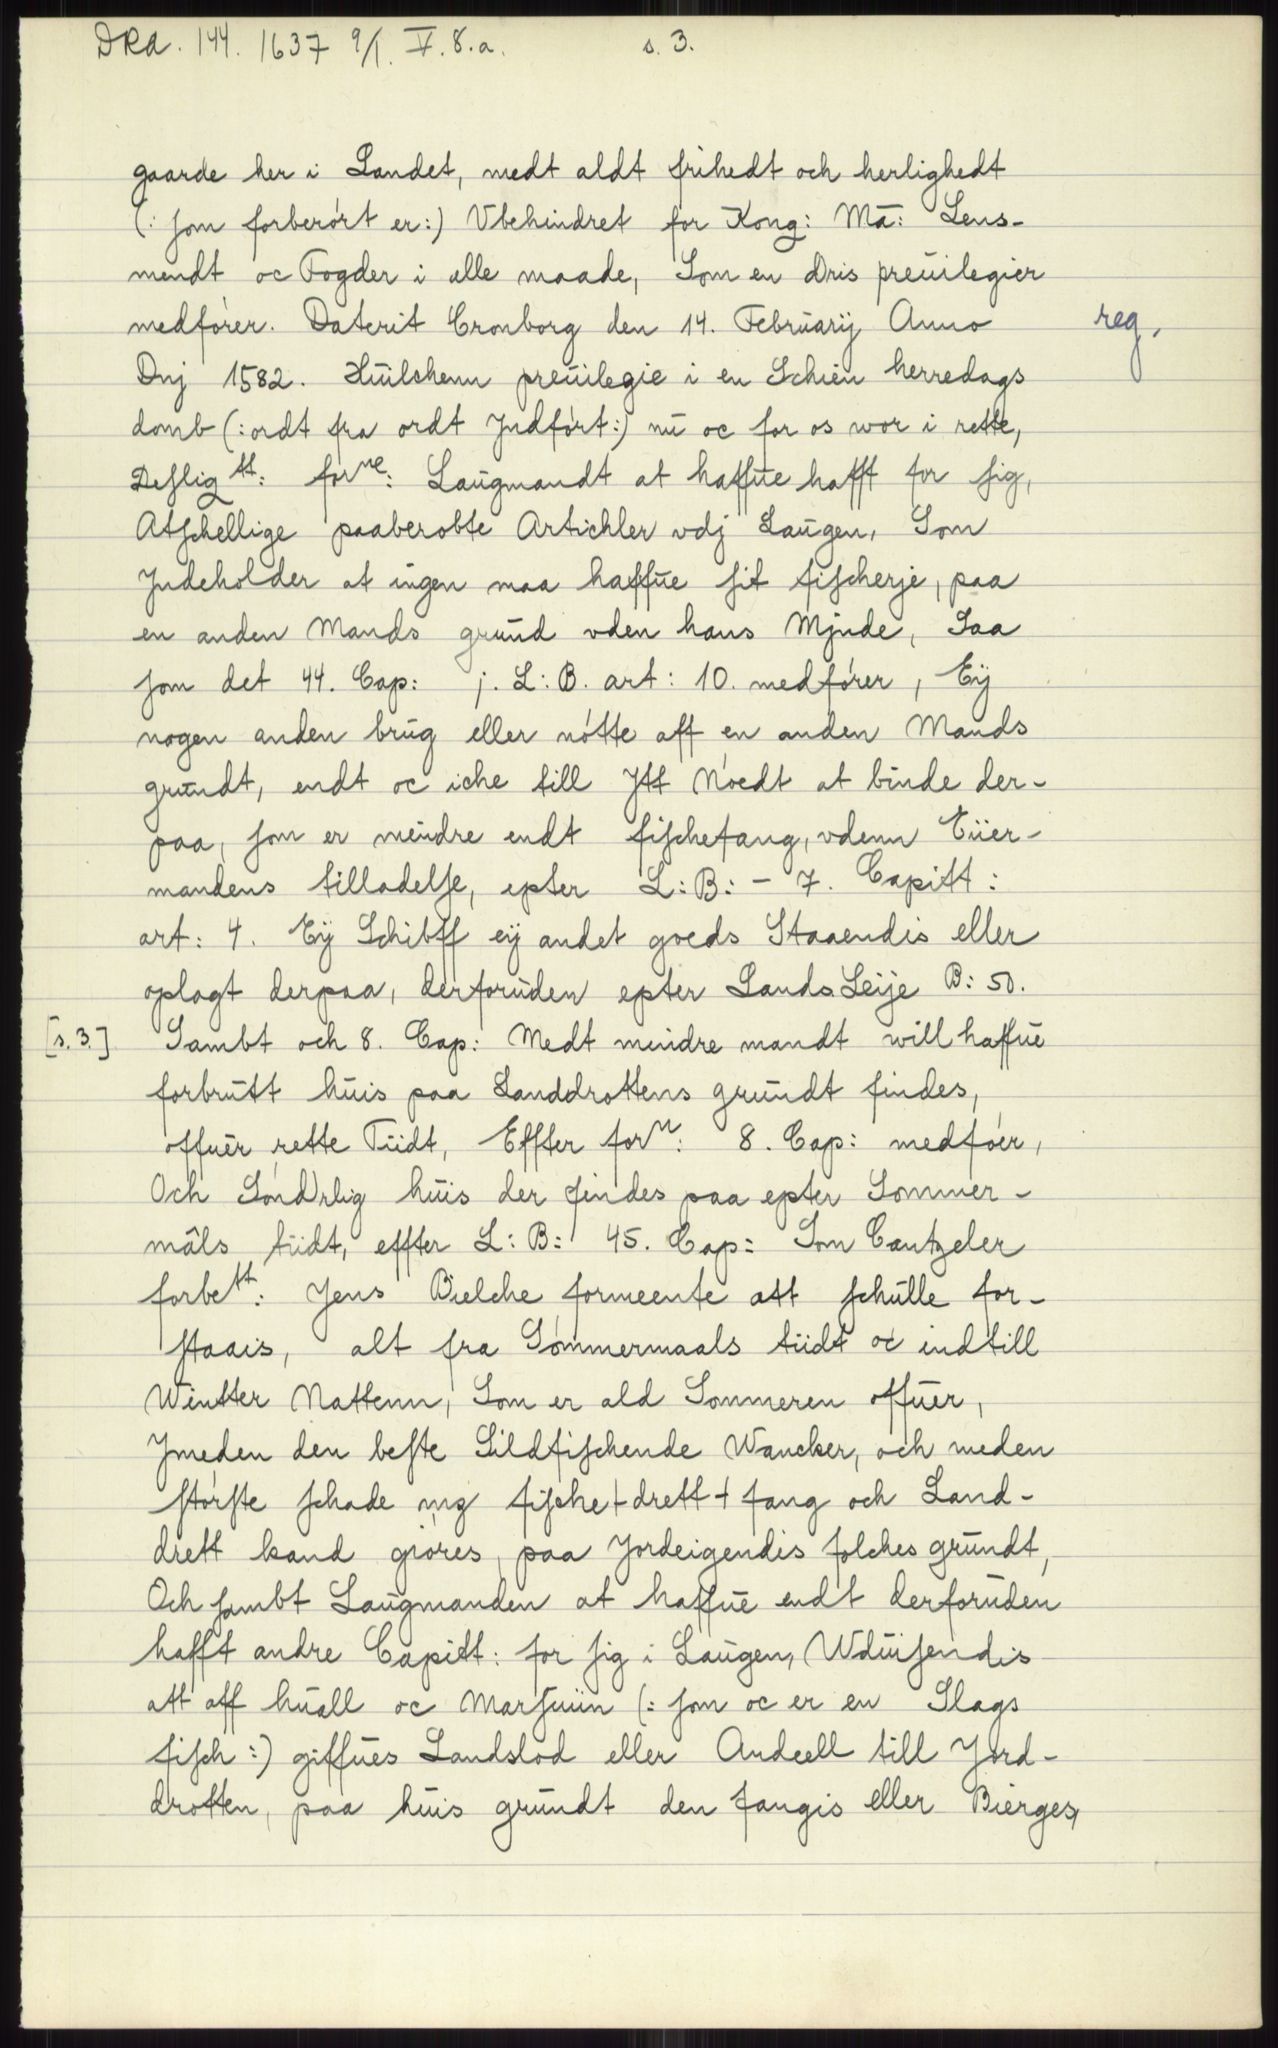 DRA. 144. 1637 9/1. V. 8. a. s. 3.
gaarde her i Landet, medt aldt frihedt och herlighedt
(: som forberört er:) Vbehindret for Kong: Mā: Lens-
mendt oc Fogder i alle maade, Som en dris preuilegier
medförer. Daterit Cronborg den 14. Februarij Anno
reg.
Dnj 1582. Huilchenn preuilegie i en Schien herredags
domb (: ordt fra ordt Jndfört:) nu oc for os wor i rette,
Desligtt: forne: Laugmandt at haffue hafft for sig,
Atschellige paaberobte Artichler vdj Laugen, Som
Jndeholder at ingen maa haffue sit fischerje, paa
en anden Mands grund vden hans Mjnde, Saa
som det 44. Cap: j. L: B. art: 10. medförer, Eÿ
nogen anden brug eller nötte aff en anden Mands
grundt, endt oc iche till Jtt Noedt at binde der-
paa, som er meindre endt fischefang, vdenn Eiier-
mandens tilladelse, epter L: B: - 7. Capitt:
art: 4. Eÿ Schibff eÿ andet goeds Staaendis eller
oplagt derpaa, derforuden epter Lands Leije B: 50.
[s. 3.] Sambt och 8. Cap: Medt mindre mandt will haffue
forbrutt huis paa Landdrottens grundt findes,
offuer rette Tiidt, Effter forn: 8. Cap: medföer,
Och Söndrlig huis der findes paa epter Sommer-
måls tiidt, effter L: B: 45. Cap: Som Cantzeler
forbett: Jens Bielche formeente att schulle for-
staais, alt fra Sommermaals tiidt oc indtill
Wintter Nattenn, Som er ald Sommeren offuer,
Jmeden den beste Sildfischende Wancker, och meden
störste schade mz fische + drett + fang och Land-
drett kand giöres, paa Jordeigendis folches grundt,
Och sambt Laugmanden at haffue endt derforuden
hafft andre Capitt: for sig i Laugen, Wduisendis
att aff huall oc Marsuiin (: som oc er en Slags
fisch:) giffues Landslod eller Andeell till Jord-
drotten, paa huis grundt den fangis eller Bierges,